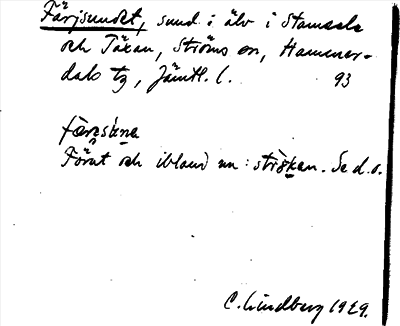 Färjsundet, sund i älv i Stamsele
och Täxan, Ströms sn, Hammer-
dals tg, Jämtl. l. 93
Förut och ibland nu: Se d.o.
C. Lindberg 1929.